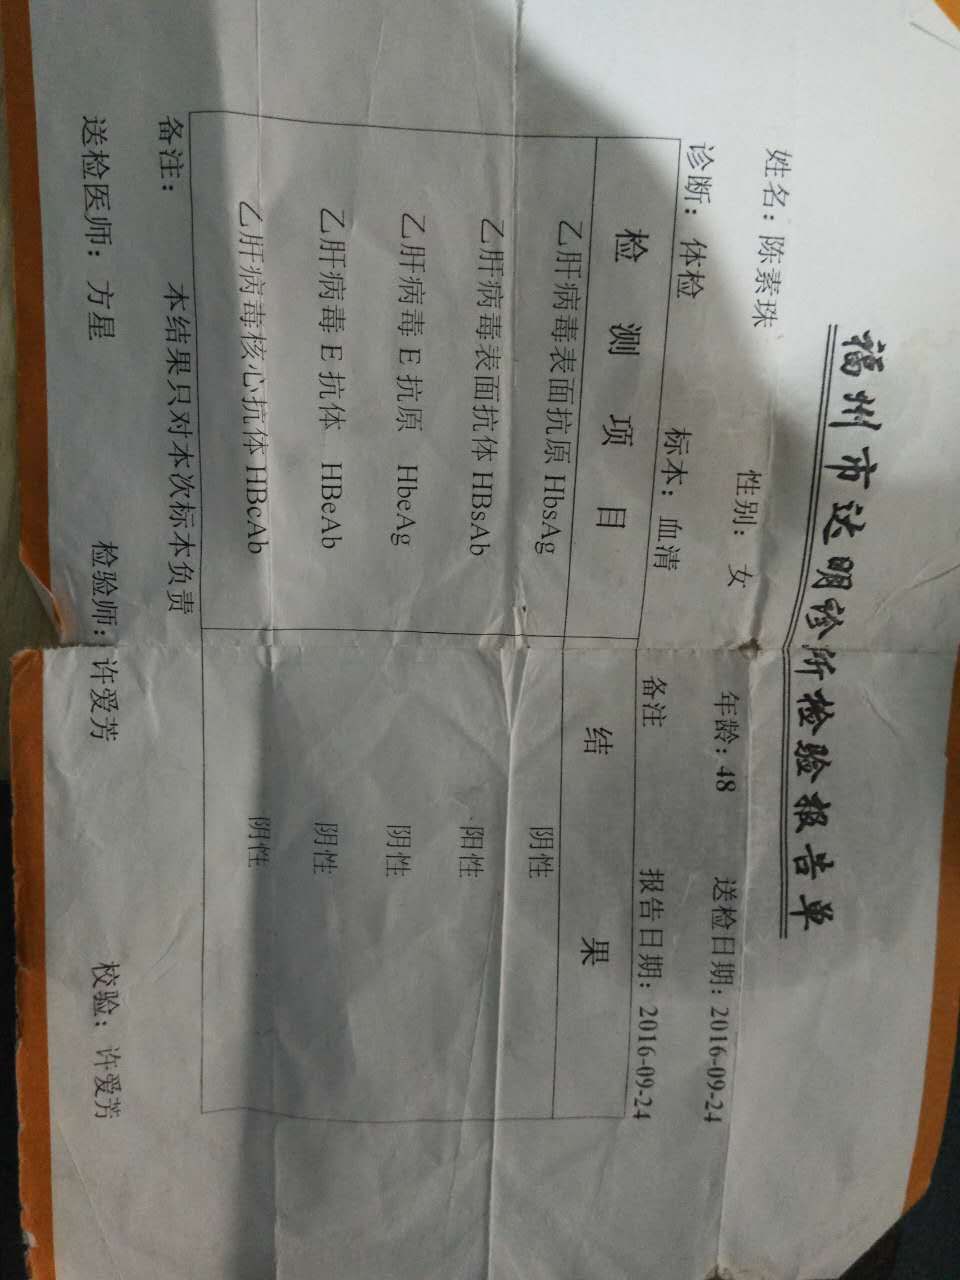 福州市达明诊所检验报告单
姓名：陈素珠 性别：女 年龄：48 送检日期：2016-09-24
诊断：体检 标本：血清 备注 报告日期：2016-09-24
检 测 项 目 结 果
乙肝病毒表面抗原 HbsAg 阴性
乙肝病毒表面抗体 HBsAb 阳性
乙肝病毒 E 抗原 HbeAg 阴性
乙肝病毒 E 抗体 HBeAb 阴性
乙肝病毒核心抗体 HBcAb 阴性
备注： 本结果只对本次标本负责
送检医师：方星 检验师：许爱芳 校验：许爱芳